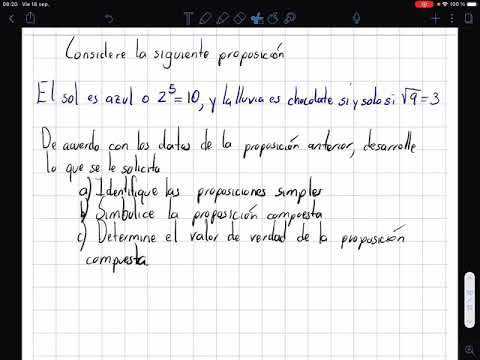 08:20 Vie 18 sep.
100 %
Considere la siguiente proposición
El sol es azul o 2⁵=10, y la lluvia es chocolate si y solo si √9=3
De acuerdo con los datos de la proposición anterior, desarrolle
lo que se le solicita
a) Identifique las proposiciones simples
b) Simbolice la proposición compuesta
c) Determine el valor de verdad de la proposición
compuesta